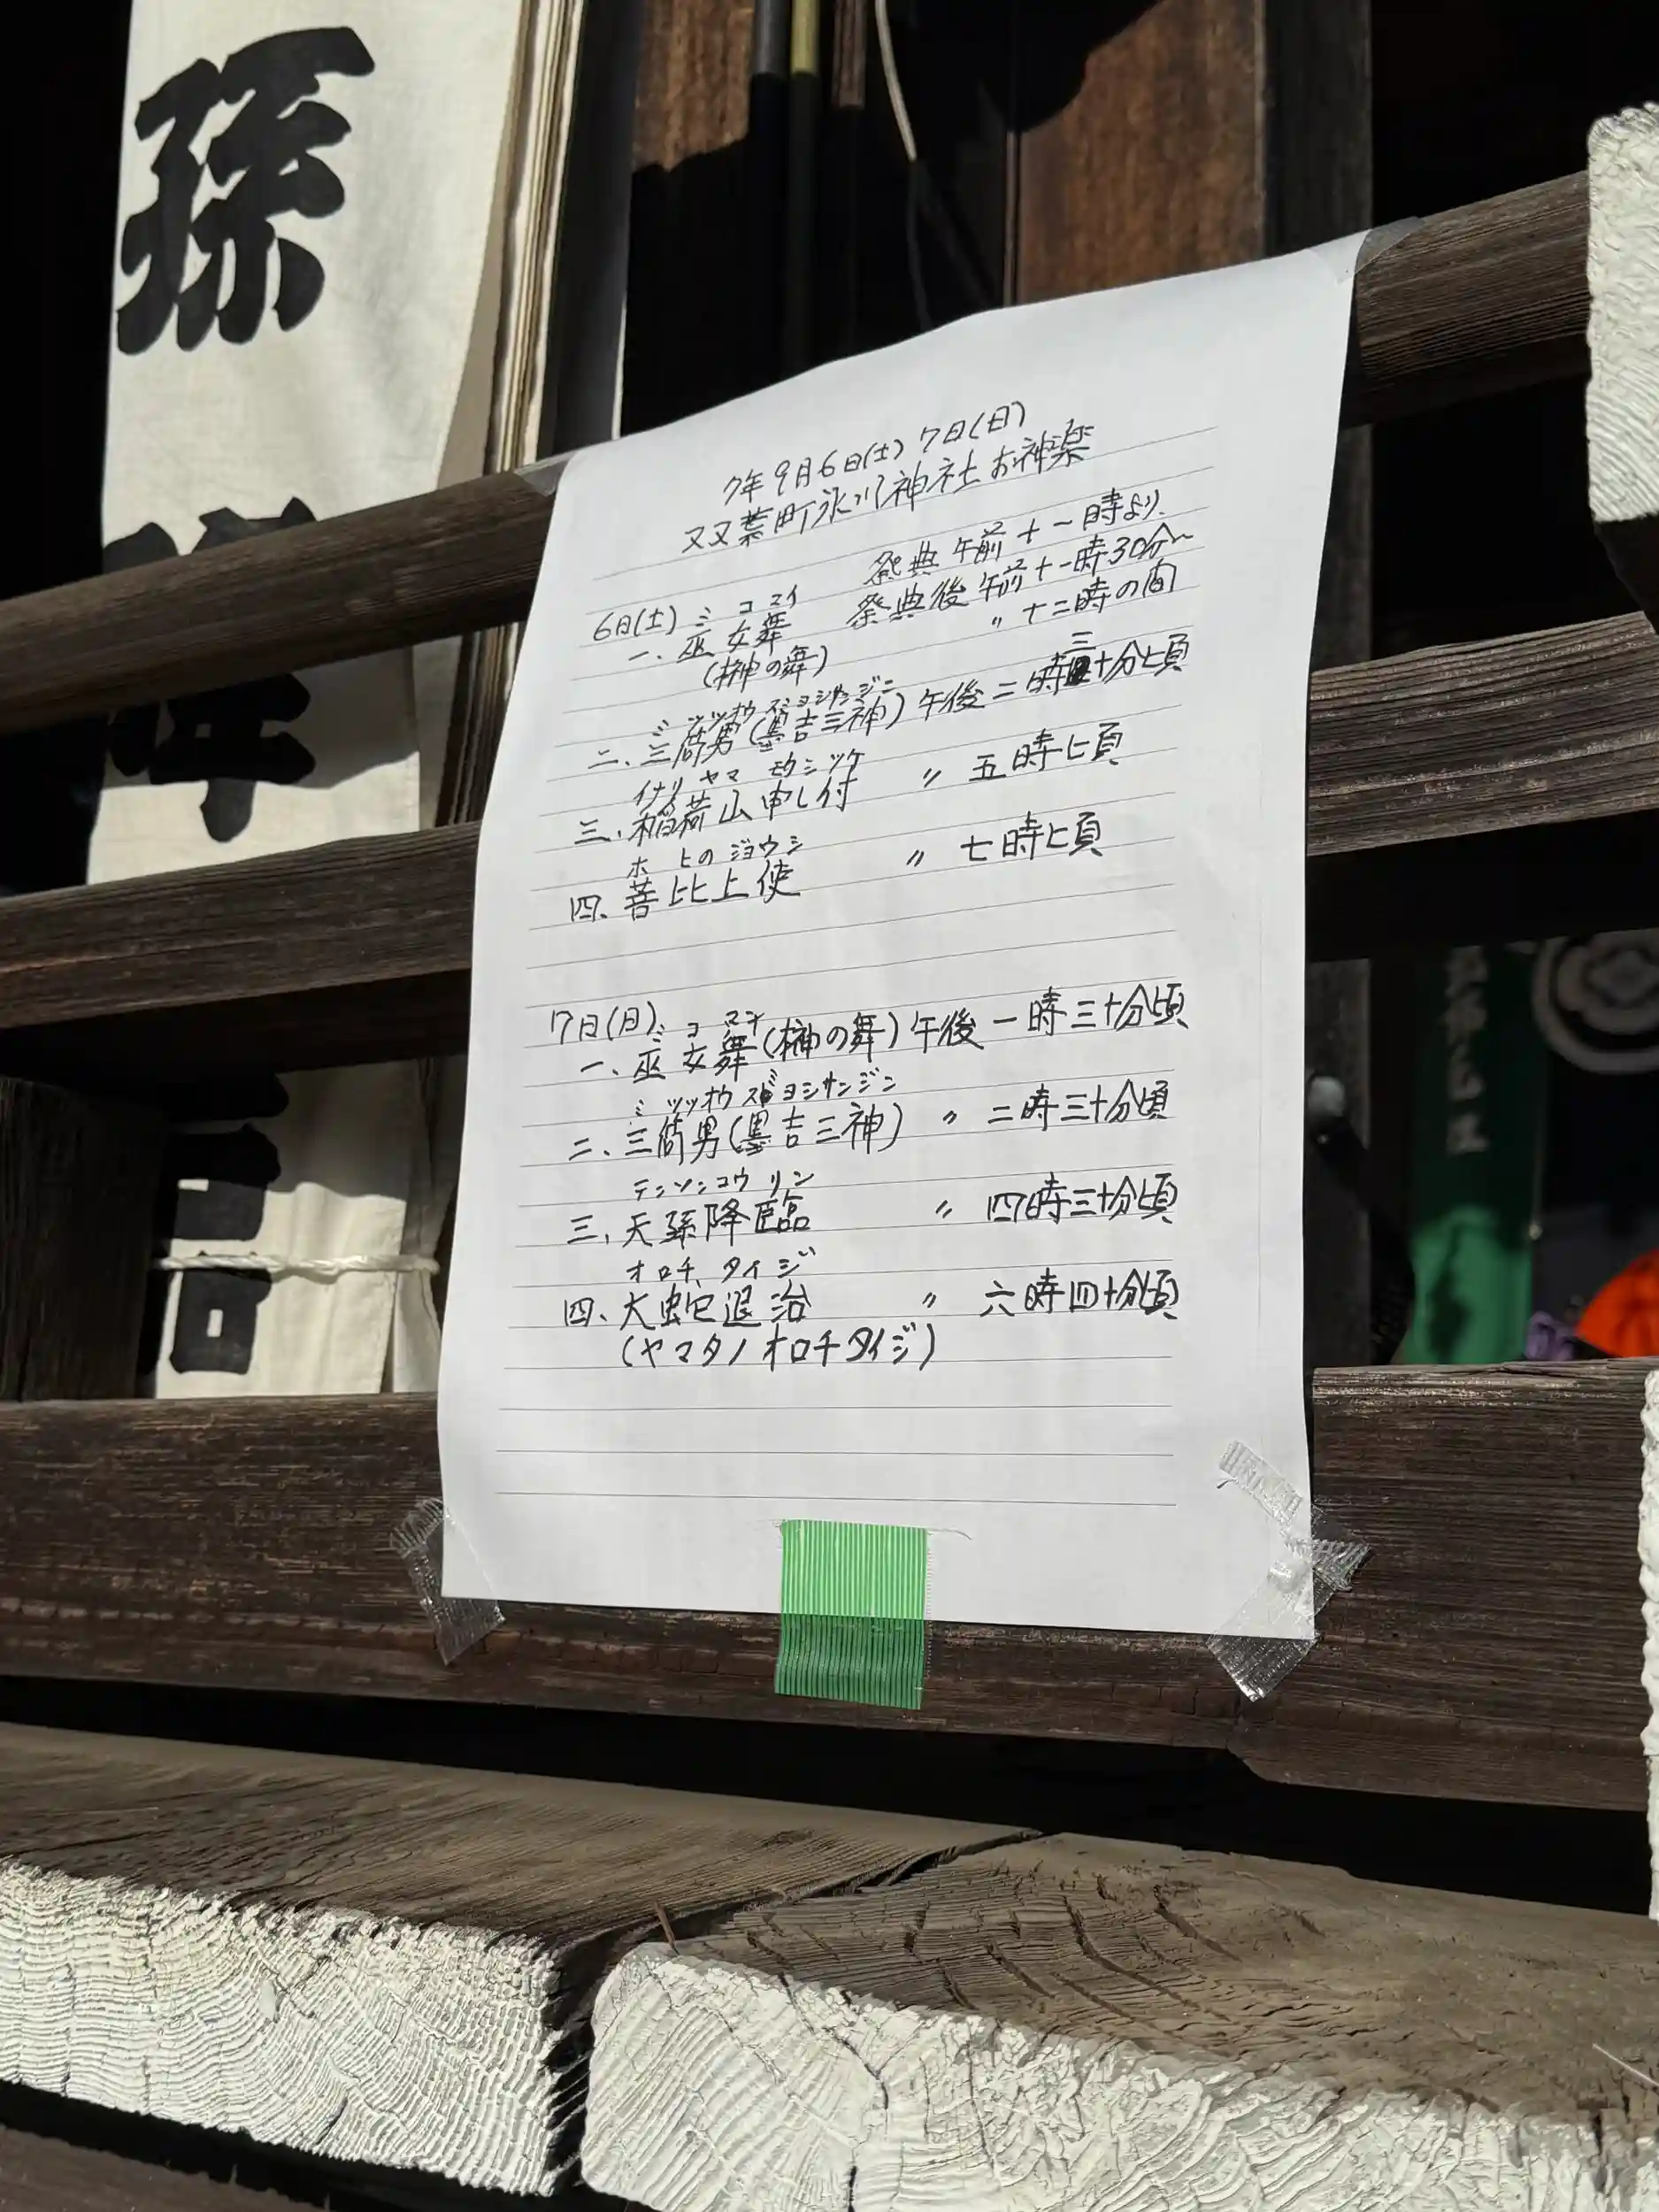 孫
7年9月6日(土) 7日(日)
双葉町氷川神社お神楽
祭典 午前十一時より
6日(土) ミコマイ 祭典後 午前十一時30分〜
一、巫女舞 〃 十二時の間
(榊の舞)
ミツツオウ スミヨシサンジン
二、三筒男(墨吉三神) 午後二時三十分ヒ頃
イナリヤマ モウシツケ
三、稲荷山申し付 〃 五時ヒ頃
ホヒのジョウシ
四、菩比上使 〃 七時ヒ頃
7日(日) ミコマイ
一、巫女舞(榊の舞) 午後一時三十分頃
ミツツオウ スミヨシサンジン
二、三筒男(墨吉三神) 〃 二時三十分頃
テンソンコウリン
三、天孫降臨 〃 四時三十分頃
オロチ タイジ
四、大蛇退治 〃 六時四十分頃
(ヤマタノオロチタイジ)